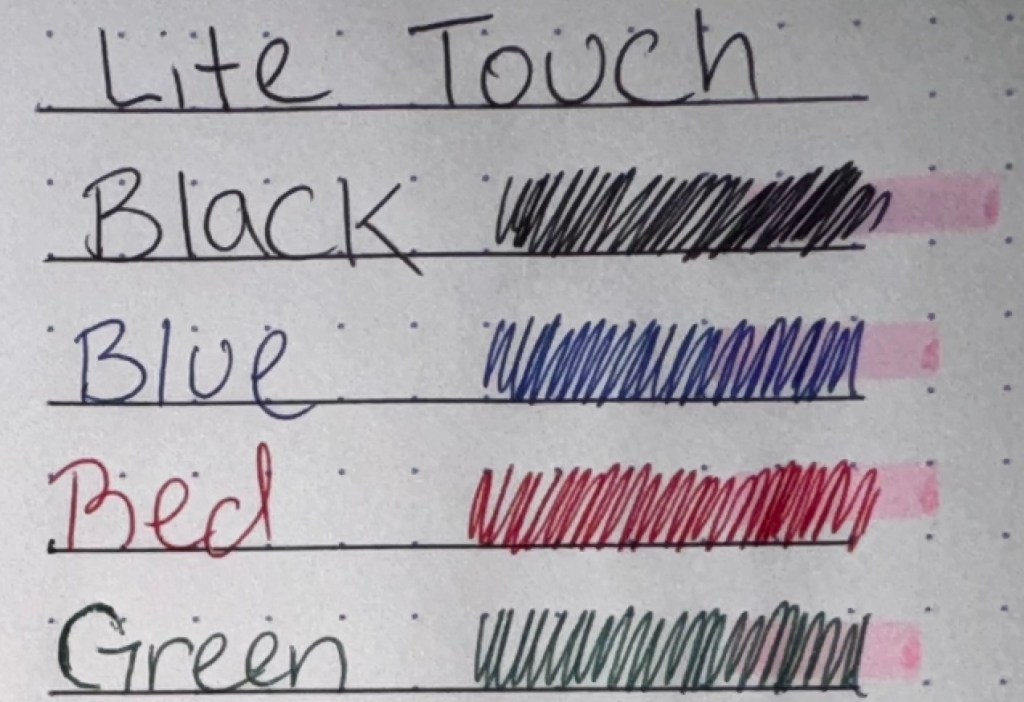 Lite Touch
Black
Blue
Red
Green